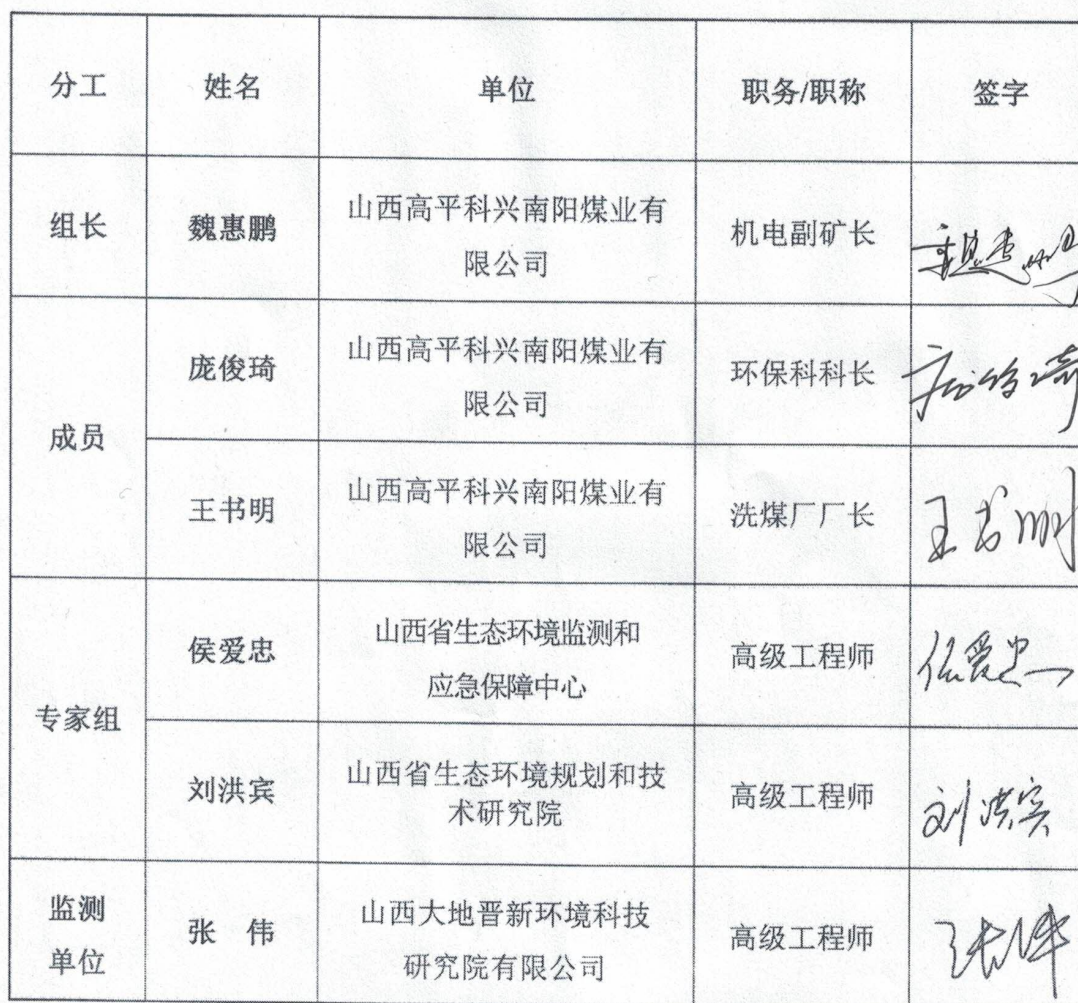 分工 姓名 单位 职务/职称 签字
组长 魏惠鹏 山西高平科兴南阳煤业有
限公司 机电副矿长 魏惠鹏
成员 庞俊琦 山西高平科兴南阳煤业有
限公司 环保科科长 庞俊琦
王书明 山西高平科兴南阳煤业有
限公司 洗煤厂厂长 王书明
专家组 侯爱忠 山西省生态环境监测和
应急保障中心 高级工程师 侯爱忠
刘洪宾 山西省生态环境规划和技
术研究院 高级工程师 刘洪宾
监测
单位 张 伟 山西大地晋新环境科技
研究院有限公司 高级工程师 张伟